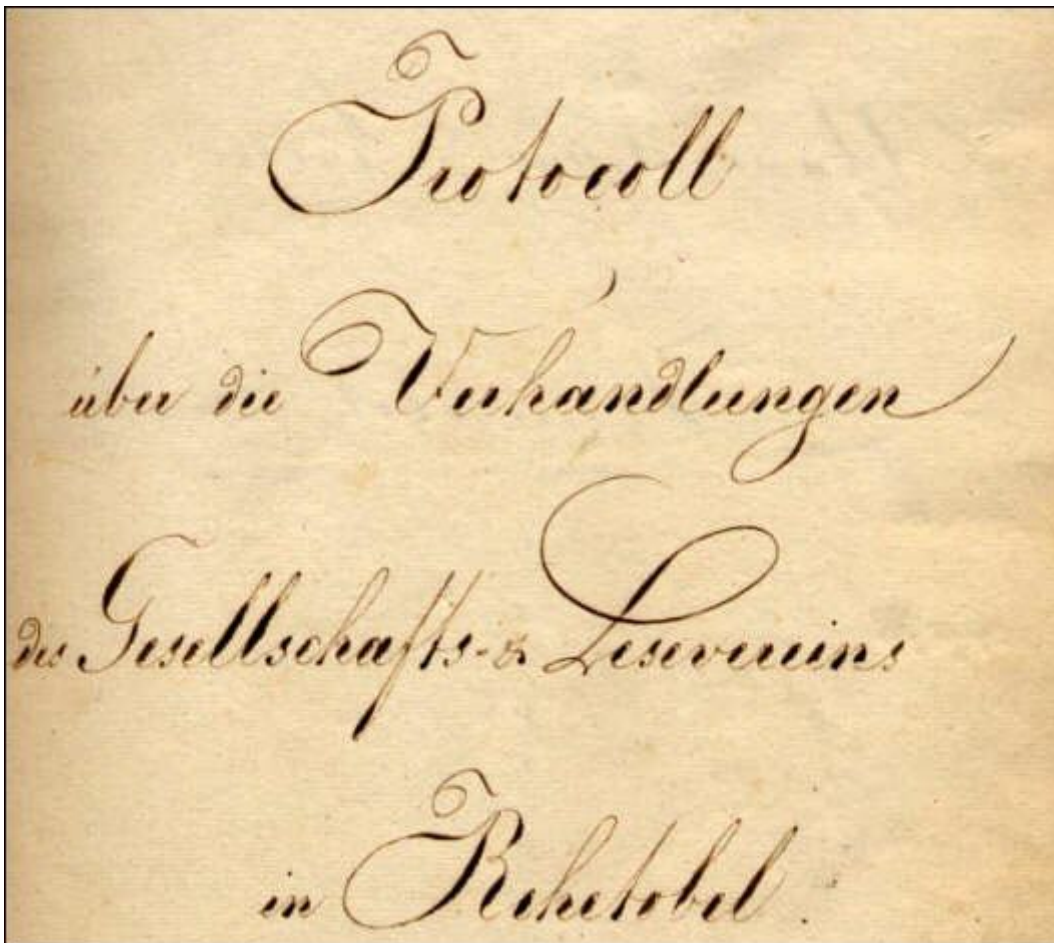 Protocoll
über die Verhandlungen
des Gesellschafts- & Lesevereins
in Rehetobel.